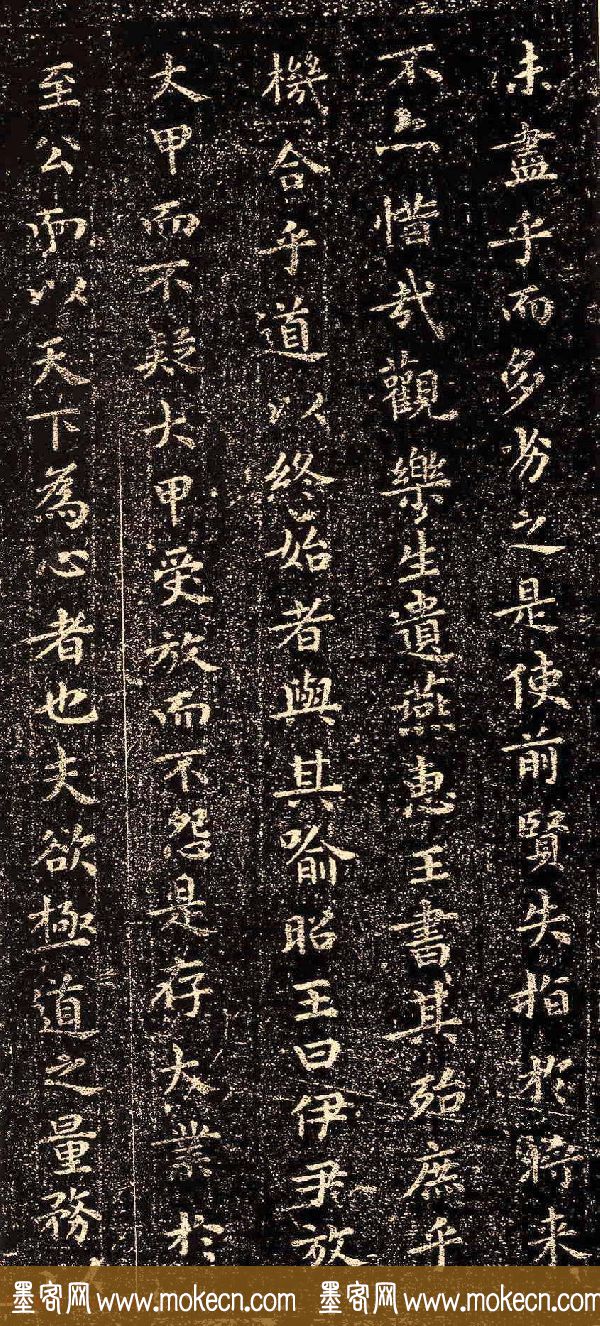 未盡乎而多劣之是使前賢失指於將来
不亦惜哉觀樂生遺燕惠王書其殆庶乎
機合乎道以終始者與其喻昭王曰伊尹放
大甲而不疑大甲受放而不怨是存大業於
至公而以天下為心者也夫欲極道之量務
墨客网 www.mokecn.com 墨客网 www.mokecn.com